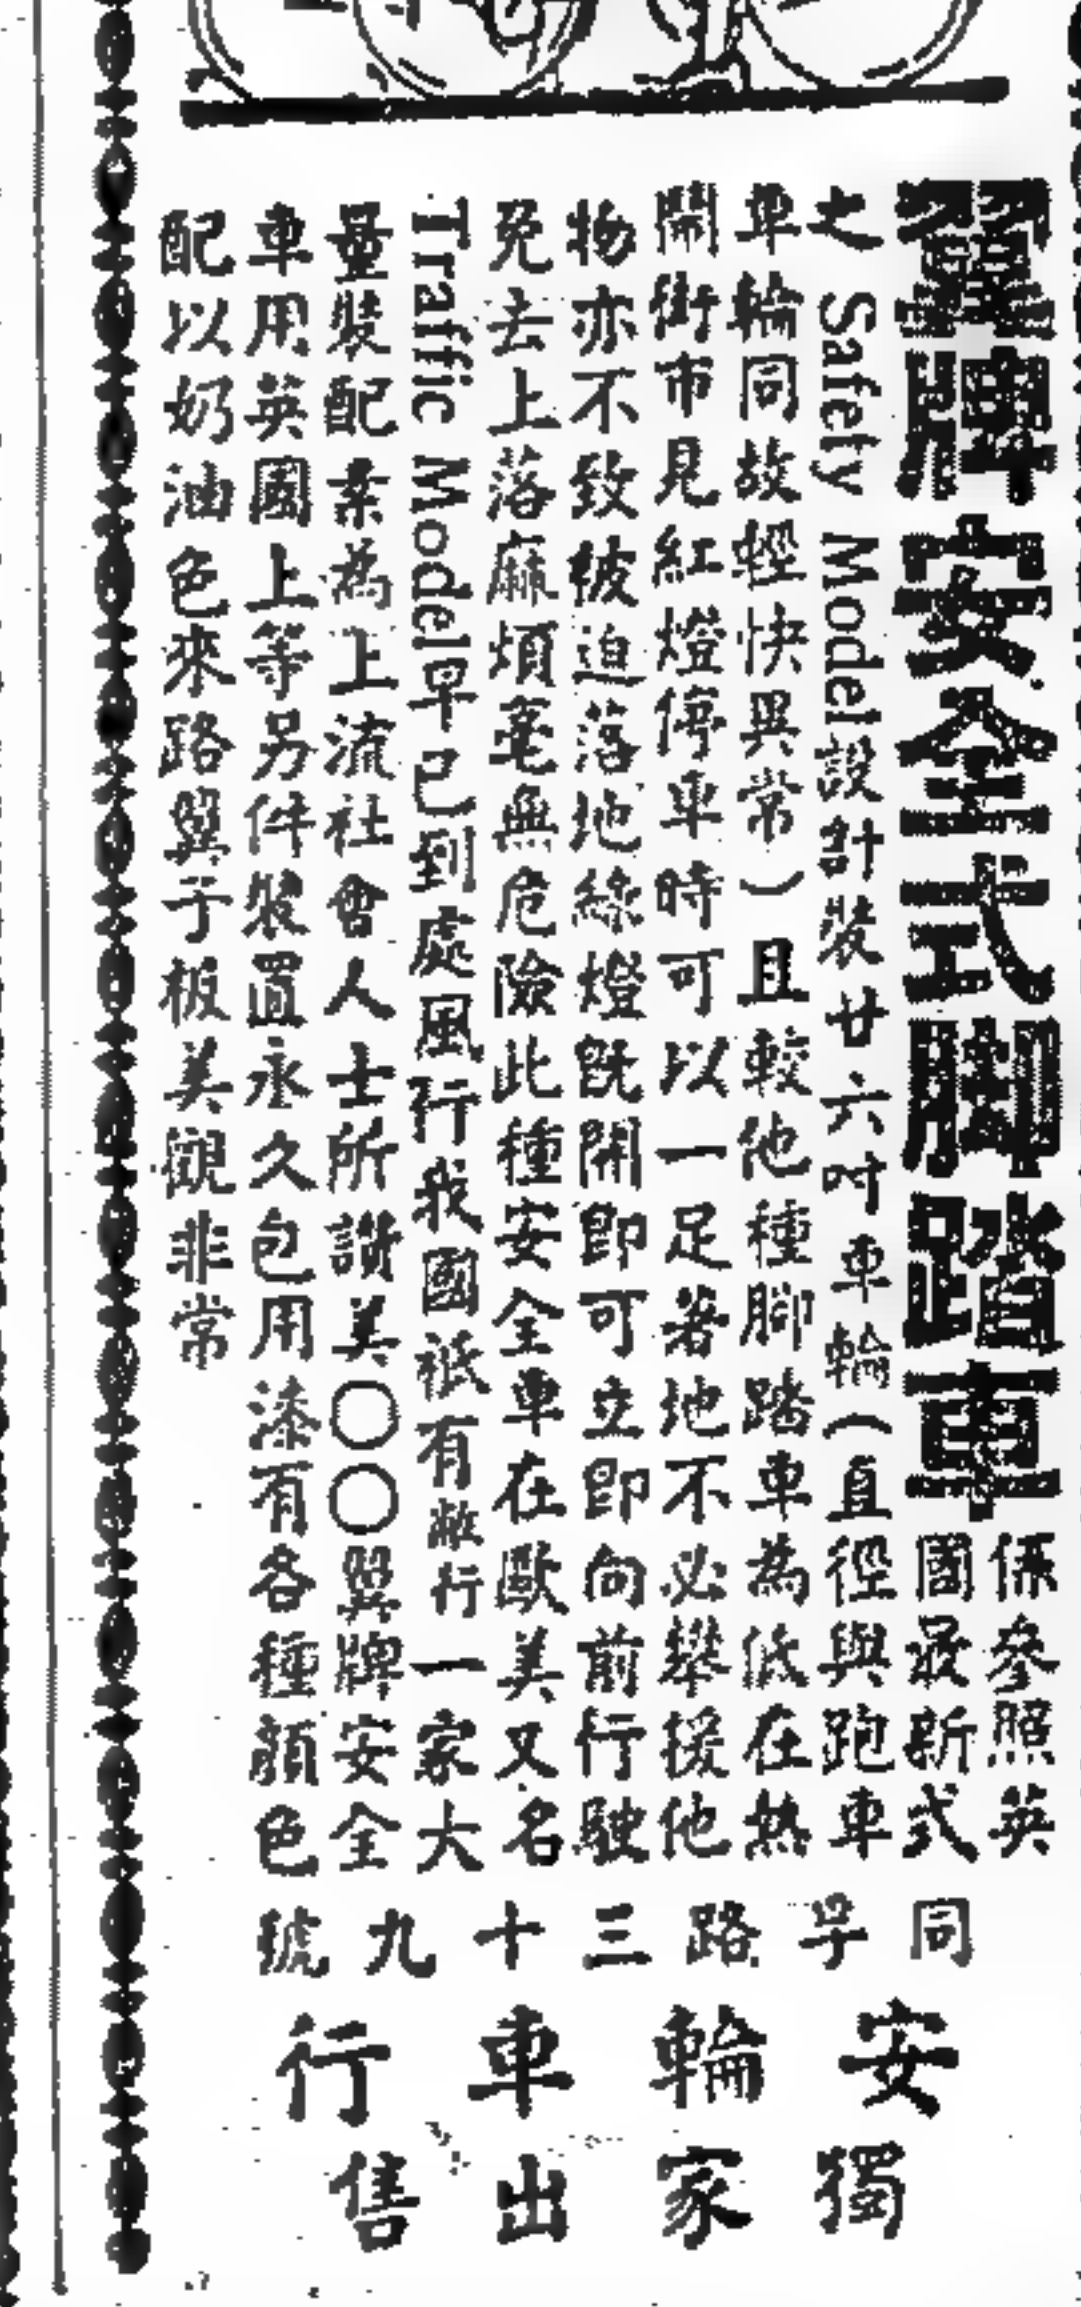 翼牌安全式脚踏車
係參照英
國最新式
之 Safety Model設計裝廿六吋車輪(直徑與跑車
車輪同故輕快異常)且較他種腳踏車為低在熱
鬧街市見紅燈停車時可以一足著地不必攀援他
物亦不致被迫落地綠燈既開即可立即向前行駛
免去上落麻煩毫無危險此種安全車在歐美又名
Traffic Model早已到處風行我國祇有敝行一家大
量裝配業為上流社會人士所讚美○○翼牌安全
車用英國上等另件裝置永久包用漆有各種顏色
配以奶油色來路翼子板美觀非常
同孚路三十九號
安輪車行
獨家出售